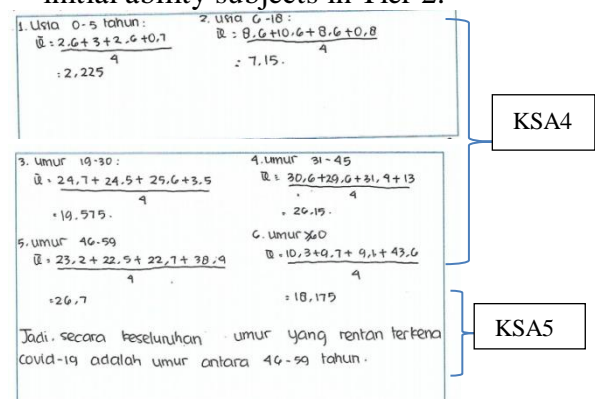 initial ability subjects in Tier 2.
1. Usia 0-5 tahun:
x̄ = 2.6+3+2.6+0,7
4
= 2,225
2. Usia 6-18:
x̄ = 8.6+10,6+8,6+0,8
4
= 7,15.
KSA4
3. Umur 19-30:
x̄ = 24,7+24.5+25,6+3.5
4
= 19.575.
4. Umur 31-45
x̄ = 30,6+29,6+31,4+13
4
= 26,15.
5. Umur 46-59
x̄ = 23,2+22.5+22,7+38,4
4
= 26,7
6. Umur ≥60
x̄ = 10,3+9,7+9,1+43,6
4
= 18,175
KSA5
Jadi, secara keseluruhan umur yang rentan terkena
covid-19 adalah umur antara 46-59 tahun.